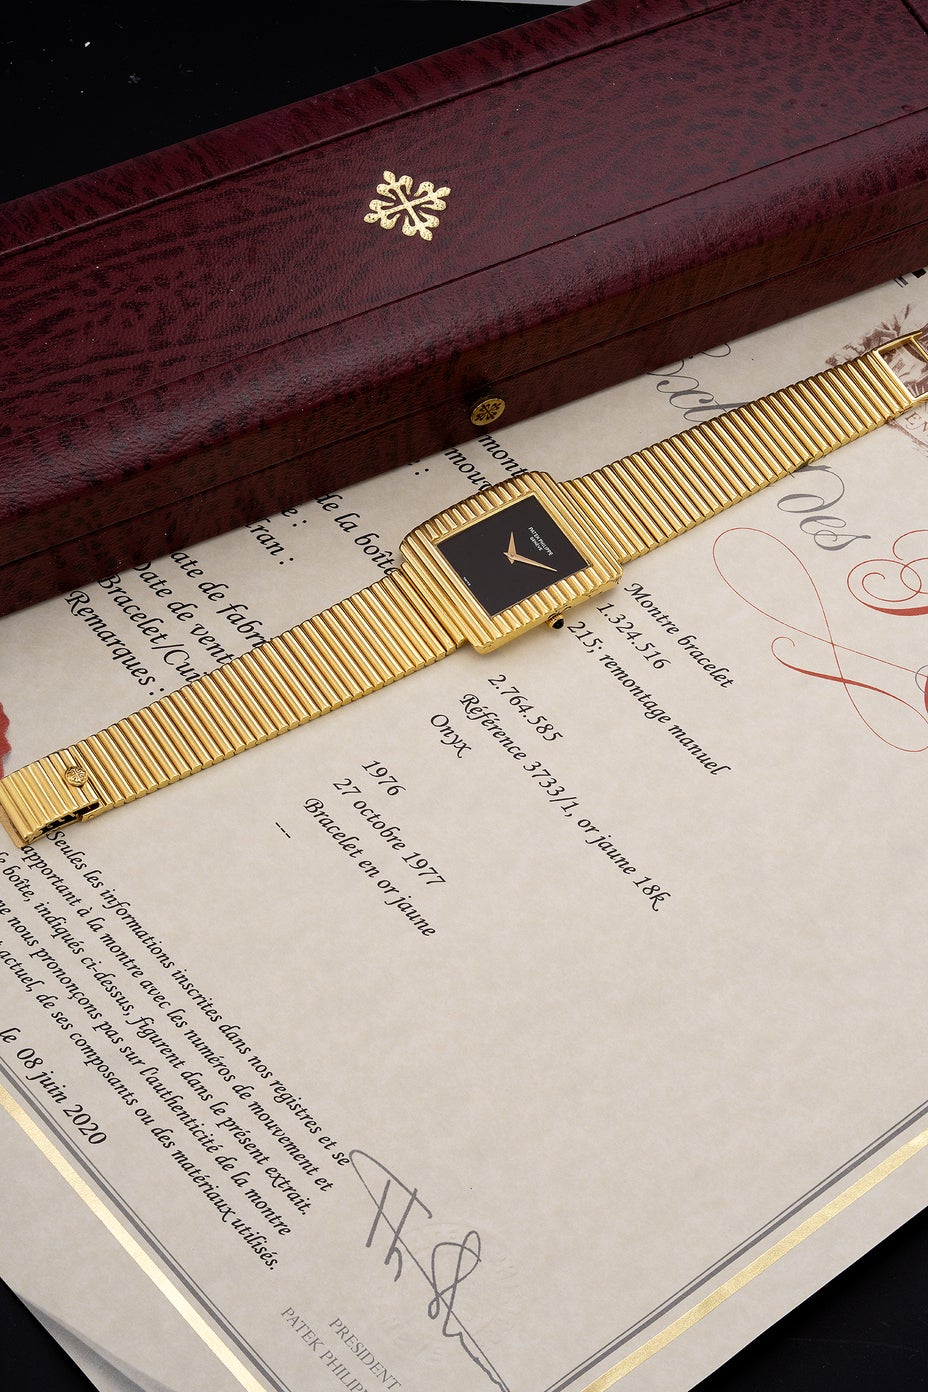 PATEK PHILIPPE
GENEVE
des
mont
mouv
de la boîte
ran :
ate de fabri
Date de vent
Bracelet/Cui
Remarques :
Montre bracelet
1.324.516
215; remontage manuel
2.764.585
Référence 3733/1, or jaune 18k
Onyx
1976
27 octobre 1977
Bracelet en or jaune
---
Seules les informations inscrites dans nos registres et se
rapportant à la montre avec les numéros de mouvement et
boîte, indiqués ci-dessus, figurent dans le présent extrait.
ne nous prononçons pas sur l'authenticité de la montre
actuel, de ses composants ou des matériaux utilisés.
le 08 juin 2020
PRESIDENT
PATEK PHILIPP